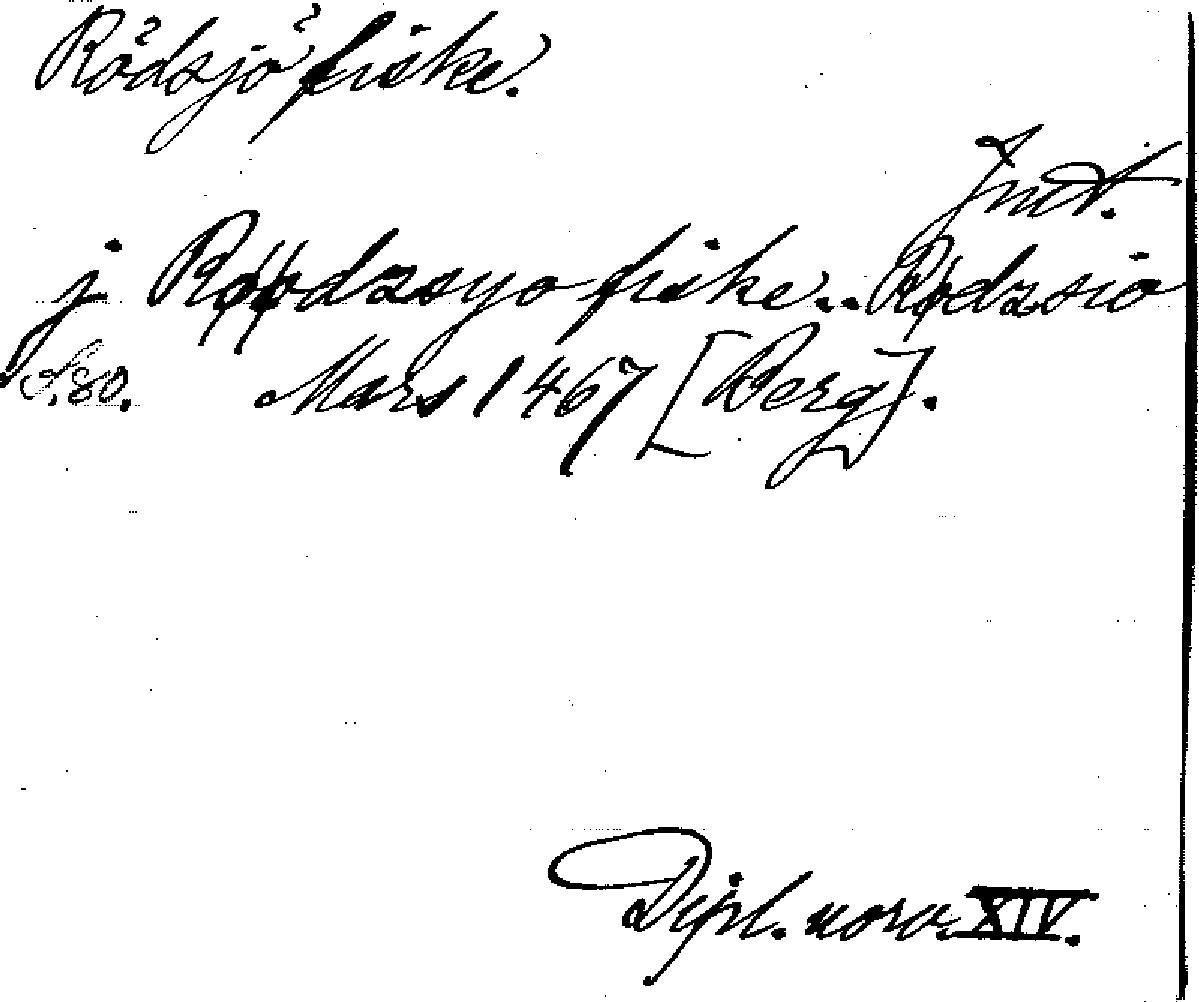 Rödsjö fiske.
Jmt.
j Røødzsyo fiske.. Rødzsio
S. 80. Mars 1467 [Berg].
Dipl. norv. XIV.